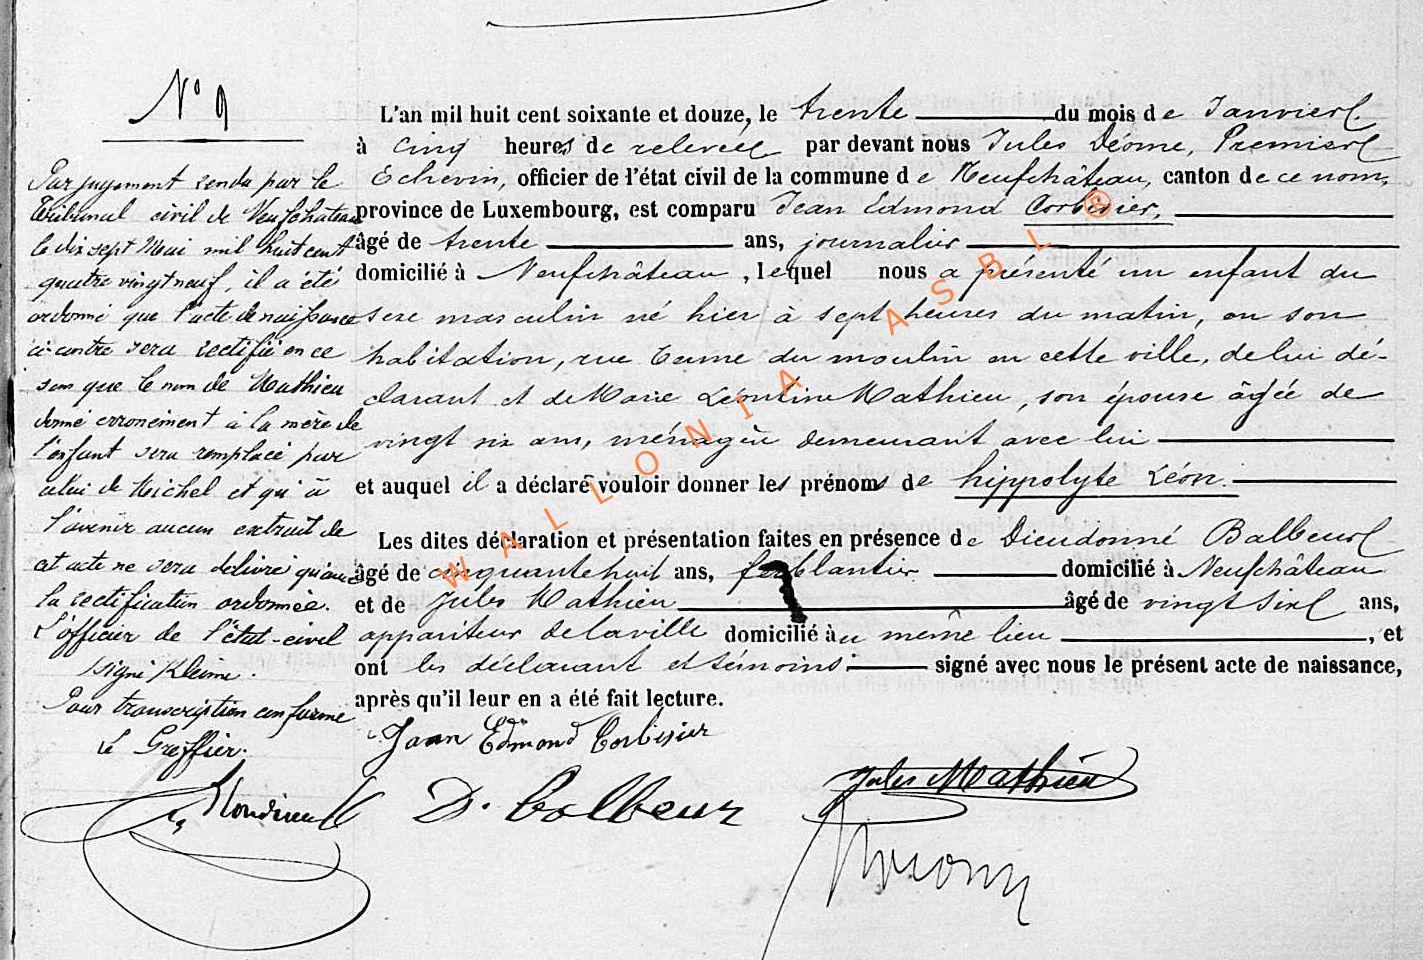 N° 9
Par jugement rendu par le
Tribunal civil de Neufchâteau
le dix sept Mai mil huit cent
quatre vingt neuf, il a été
ordonné que l'acte de naissance
ci-contre sera rectifié en ce
sens que le nom de Mathieu
donné erronément à la mère de
l'enfant sera remplacé par
celui de Michel et qu'à
l'avenir aucun extrait de
cet acte ne sera délivré qu'avec
la rectification ordonnée.
L'officier de l'état-civil
signé Kleine.
Pour transcription conforme
Le Greffier.
L'an mil huit cent soixante et douze, le trente du mois de Janvier
à cinq heures de relevée par devant nous Jules Déome, Premier
Echevin, officier de l'état civil de la commune de Neufchâteau, canton de ce nom,
province de Luxembourg, est comparu Jean Edmond Corbisier,
âgé de trente ans, journalier
domicilié à Neufchâteau, lequel nous a présenté un enfant du
sexe masculin né hier à sept heures du matin, en son
habitation, rue du moulin en cette ville, de lui dé-
clarant et de Marie Léontine Mathieu, son épouse âgée de
vingt six ans, ménagère demeurant avec lui
et auquel il a déclaré vouloir donner les prénoms de hippolyte Léon.
Les dites déclaration et présentation faites en présence de Dieudonné Balbeur
âgé de cinquante huit ans, ferblantier domicilié à Neufchâteau
et de Jules Mathieu âgé de vingt six ans,
appariteur de la ville domicilié au même lieu, et
ont les déclarant et témoins signé avec nous le présent acte de naissance,
après qu'il leur en a été fait lecture.
Jean Edmond Corbisier
D. Balbeur
Jules Mathieu
WALLONIA ASBL ®